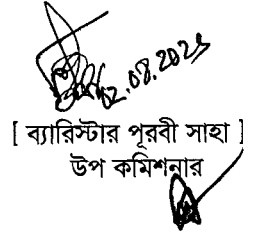 02.08.2025
[ ব্যারিস্টার পূরবী সাহা ]
উপ কমিশনার